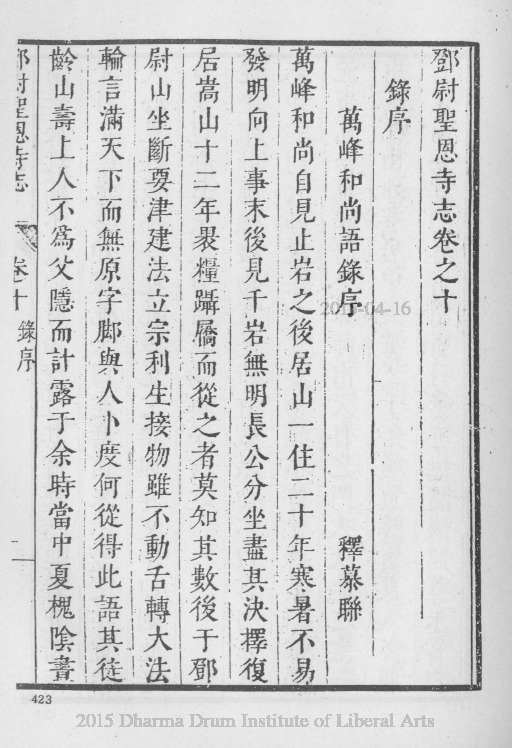 鄧尉聖恩寺志卷之十
錄序
萬峰和尚語錄序 釋慕聯
萬峰和尚自見止岩之後居山一住二十年寒暑不易
發明向上事末後見千岩無明長公分坐盡其決擇復
居嵩山十二年褁糧躡屩而從之者莫知其數後于鄧
尉山坐斷要津建法立宗利生接物雖不動舌轉大法
輪言滿天下而無原字脚與人卜度何從得此語其徒
齡山壽上人不爲父隱而計露于余時當中夏槐陰晝
鄧尉聖恩寺志 卷十 錄序
2015-04-16
423
2015 Dharma Drum Institute of Liberal Arts